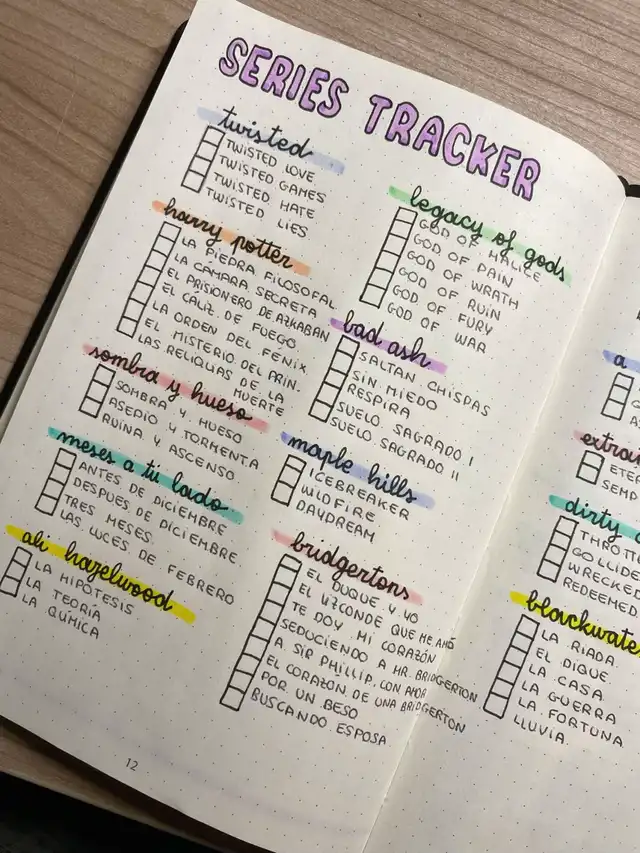 SERIES TRACKER
twisted
TWISTED LOVE
TWISTED GAMES
TWISTED HATE
TWISTED LIES
harry potter
LA PIEDRA FILOSOFAL
LA CÁMARA SECRETA
EL PRISIONERO DE AZKABAN
EL CÁLIZ DE FUEGO
LA ORDEN DEL FÉNIX
EL MISTERIO DEL PRIN-
LAS RELIQUIAS DE LA
MUERTE
sombra y hueso
SOMBRA Y HUESO
ASEDIO Y TORMENTA
RUINA Y ASCENSO
meses a tu lado
ANTES DE DICIEMBRE
DESPUES DE DICIEMBRE
TRES MESES
LAS LUCES DE FEBRERO
ali hazelwood
LA HIPÓTESIS
LA TEORÍA
LA QUÍMICA
legacy of gods
GOD OF MALICE
GOD OF PAIN
GOD OF WRATH
GOD OF RUIN
GOD OF FURY
GOD OF WAR
bad ash
SALTAN CHISPAS
SIN MIEDO
RESPIRA
SUELO SAGRADO I
SUELO SAGRADO II
maple hills
ICEBREAKER
WILDFIRE
DAYDREAM
bridgertons
EL DUQUE Y YO
EL VIZCONDE QUE ME AMÓ
TE DOY MI CORAZÓN
SEDUCIENDO A MR. BRIDGERTON
A SIR PHILLIP, CON AMOR
EL CORAZÓN DE UNA BRIDGERTON
POR UN BESO
BUSCANDO ESPOSA
12
a
extra
ETE
SEMP
dirty
THROTT
COLLIDE
WRECKED
REDEEMED
blackwate
LA RIADA
EL DIQUE
LA CASA
LA GUERRA
LA FORTUNA
LLUVIA